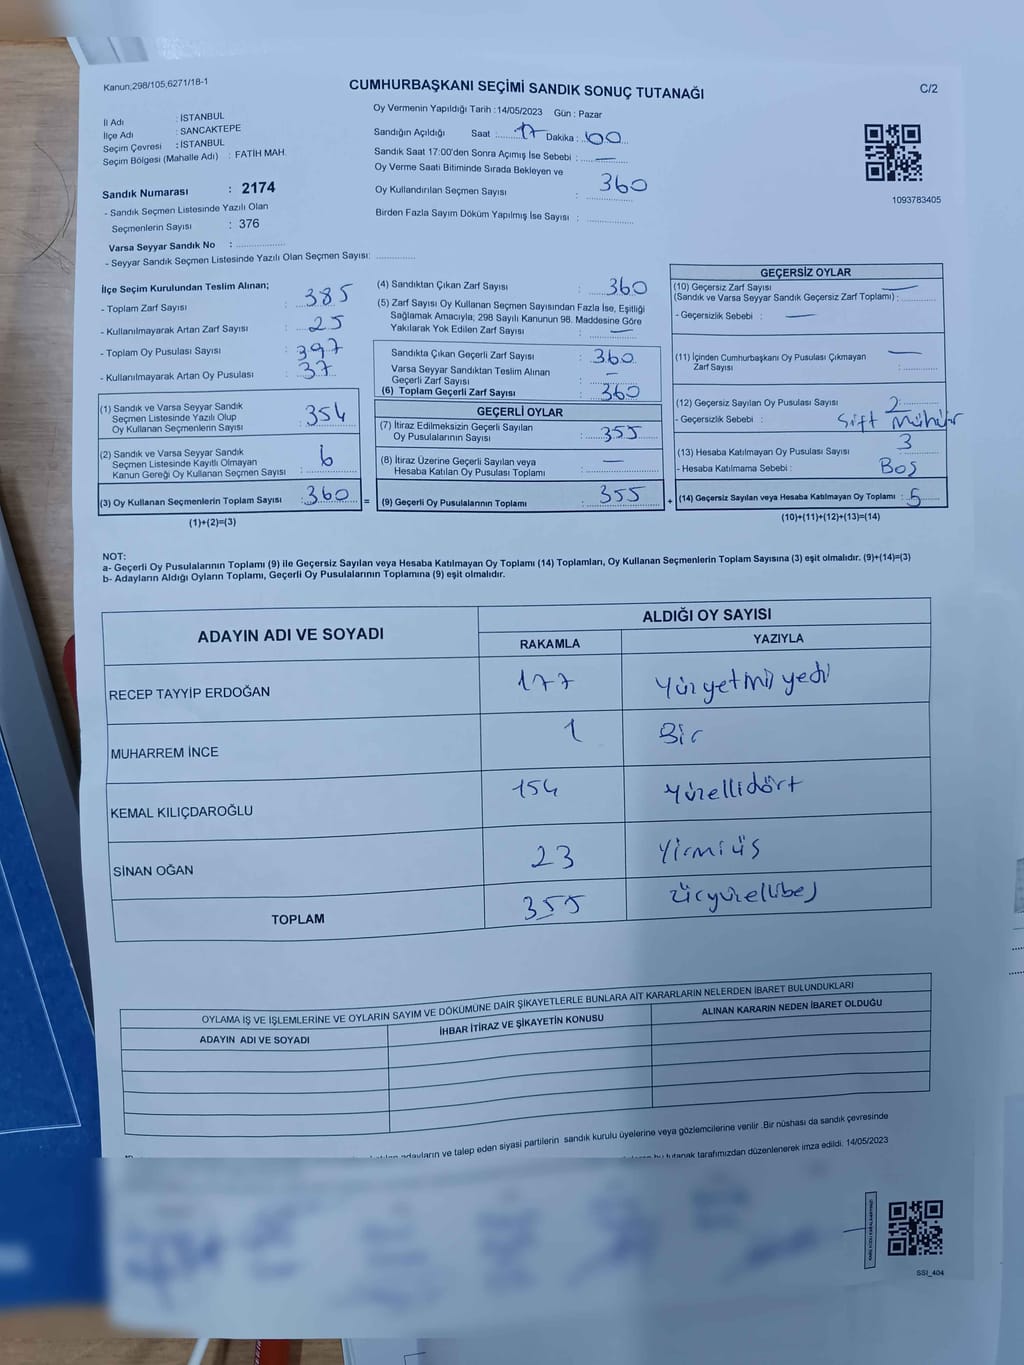 Kanun;298/105,6271/18-1
CUMHURBAŞKANI SEÇİMİ SANDIK SONUÇ TUTANAĞI
C/2
İl Adı : İSTANBUL
İlçe Adı : SANCAKTEPE
Seçim Çevresi : İSTANBUL
Seçim Bölgesi (Mahalle Adı) : FATİH MAH.
Sandık Numarası : 2174
- Sandık Seçmen Listesinde Yazılı Olan
Seçmenlerin Sayısı : 376
Varsa Seyyar Sandık No : ................
- Seyyar Sandık Seçmen Listesinde Yazılı Olan Seçmen Sayısı: .............
Oy Vermenin Yapıldığı Tarih : 14/05/2023 Gün : Pazar
Sandığın Açıldığı Saat : 17 Dakika : 00
Sandık Saat 17:00'den Sonra Açımış İse Sebebi : —
Oy Verme Saati Bitiminde Sırada Bekleyen ve
Oy Kullandırılan Seçmen Sayısı : 360
Birden Fazla Sayım Döküm Yapılmış İse Sayısı : ...............
1093783405
İlçe Seçim Kurulundan Teslim Alınan;
- Toplam Zarf Sayısı : 385
- Kullanılmayarak Artan Zarf Sayısı : 25
- Toplam Oy Pusulası Sayısı : 397
- Kullanılmayarak Artan Oy Pusulası : 37
(1) Sandık ve Varsa Seyyar Sandık
Seçmen Listesinde Yazılı Olup
Oy Kullanan Seçmenlerin Sayısı : 354
(2) Sandık ve Varsa Seyyar Sandık
Seçmen Listesinde Kayıtlı Olmayan
Kanun Gereği Oy Kullanan Seçmen Sayısı : 6
(3) Oy Kullanan Seçmenlerin Toplam Sayısı : 360 =
(1)+(2)=(3)
(4) Sandıktan Çıkan Zarf Sayısı : 360
(5) Zarf Sayısı Oy Kullanan Seçmen Sayısından Fazla İse, Eşitliği
Sağlamak Amacıyla; 298 Sayılı Kanunun 98. Maddesine Göre
Yakılarak Yok Edilen Zarf Sayısı : —
Sandıkta Çıkan Geçerli Zarf Sayısı : 360
Varsa Seyyar Sandıktan Teslim Alınan
Geçerli Zarf Sayısı : —
(6) Toplam Geçerli Zarf Sayısı : 360
GEÇERLİ OYLAR
(7) İtiraz Edilmeksizin Geçerli Sayılan
Oy Pusulalarının Sayısı : 355
(8) İtiraz Üzerine Geçerli Sayılan veya
Hesaba Katılan Oy Pusulası Toplamı : —
(9) Geçerli Oy Pusulalarının Toplamı : 355 +
GEÇERSİZ OYLAR
(10) Geçersiz Zarf Sayısı —
(Sandık ve Varsa Seyyar Sandık Geçersiz Zarf Toplamı) : ...........
- Geçersizlik Sebebi : —
(11) İçinden Cumhurbaşkanı Oy Pusulası Çıkmayan —
Zarf Sayısı : ...........
(12) Geçersiz Sayılan Oy Pusulası Sayısı : 2
- Geçersizlik Sebebi : Sift Mühür
(13) Hesaba Katılmayan Oy Pusulası Sayısı : 3
- Hesaba Katılmama Sebebi : Boş
(14) Geçersiz Sayılan veya Hesaba Katılmayan Oy Toplamı : 5
(10)+(11)+(12)+(13)=(14)
NOT:
a- Geçerli Oy Pusulalarının Toplamı (9) ile Geçersiz Sayılan veya Hesaba Katılmayan Oy Toplamı (14) Toplamları, Oy Kullanan Seçmenlerin Toplam Sayısına (3) eşit olmalıdır. (9)+(14)=(3)
b- Adayların Aldığı Oyların Toplamı, Geçerli Oy Pusulalarının Toplamına (9) eşit olmalıdır.
ADAYIN ADI VE SOYADI
ALDIĞI OY SAYISI
RAKAMLA YAZIYLA
RECEP TAYYİP ERDOĞAN 177 Yüzyetmişyedi
MUHARREM İNCE 1 Bir
KEMAL KILIÇDAROĞLU 154 Yüzellidört
SİNAN OĞAN 23 Yirmiüş
TOPLAM 355 üçyüzellibeş
OYLAMA İŞ VE İŞLEMLERİNE VE OYLARIN SAYIM VE DÖKÜMÜNE DAİR ŞİKAYETLERLE BUNLARA AİT KARARLARIN NELERDEN İBARET BULUNDUKLARI
ADAYIN ADI VE SOYADI İHBAR İTİRAZ VE ŞİKAYETİN KONUSU ALINAN KARARIN NEDEN İBARET OLDUĞU
adayların ve talep eden siyasi partilerin sandık kurulu üyelerine veya gözlemcilerine verilir .Bir nüshası da sandık çevresinde
bu tutanak tarafımızdan düzenlenerek imza edildi. 14/05/2023
SSI_404